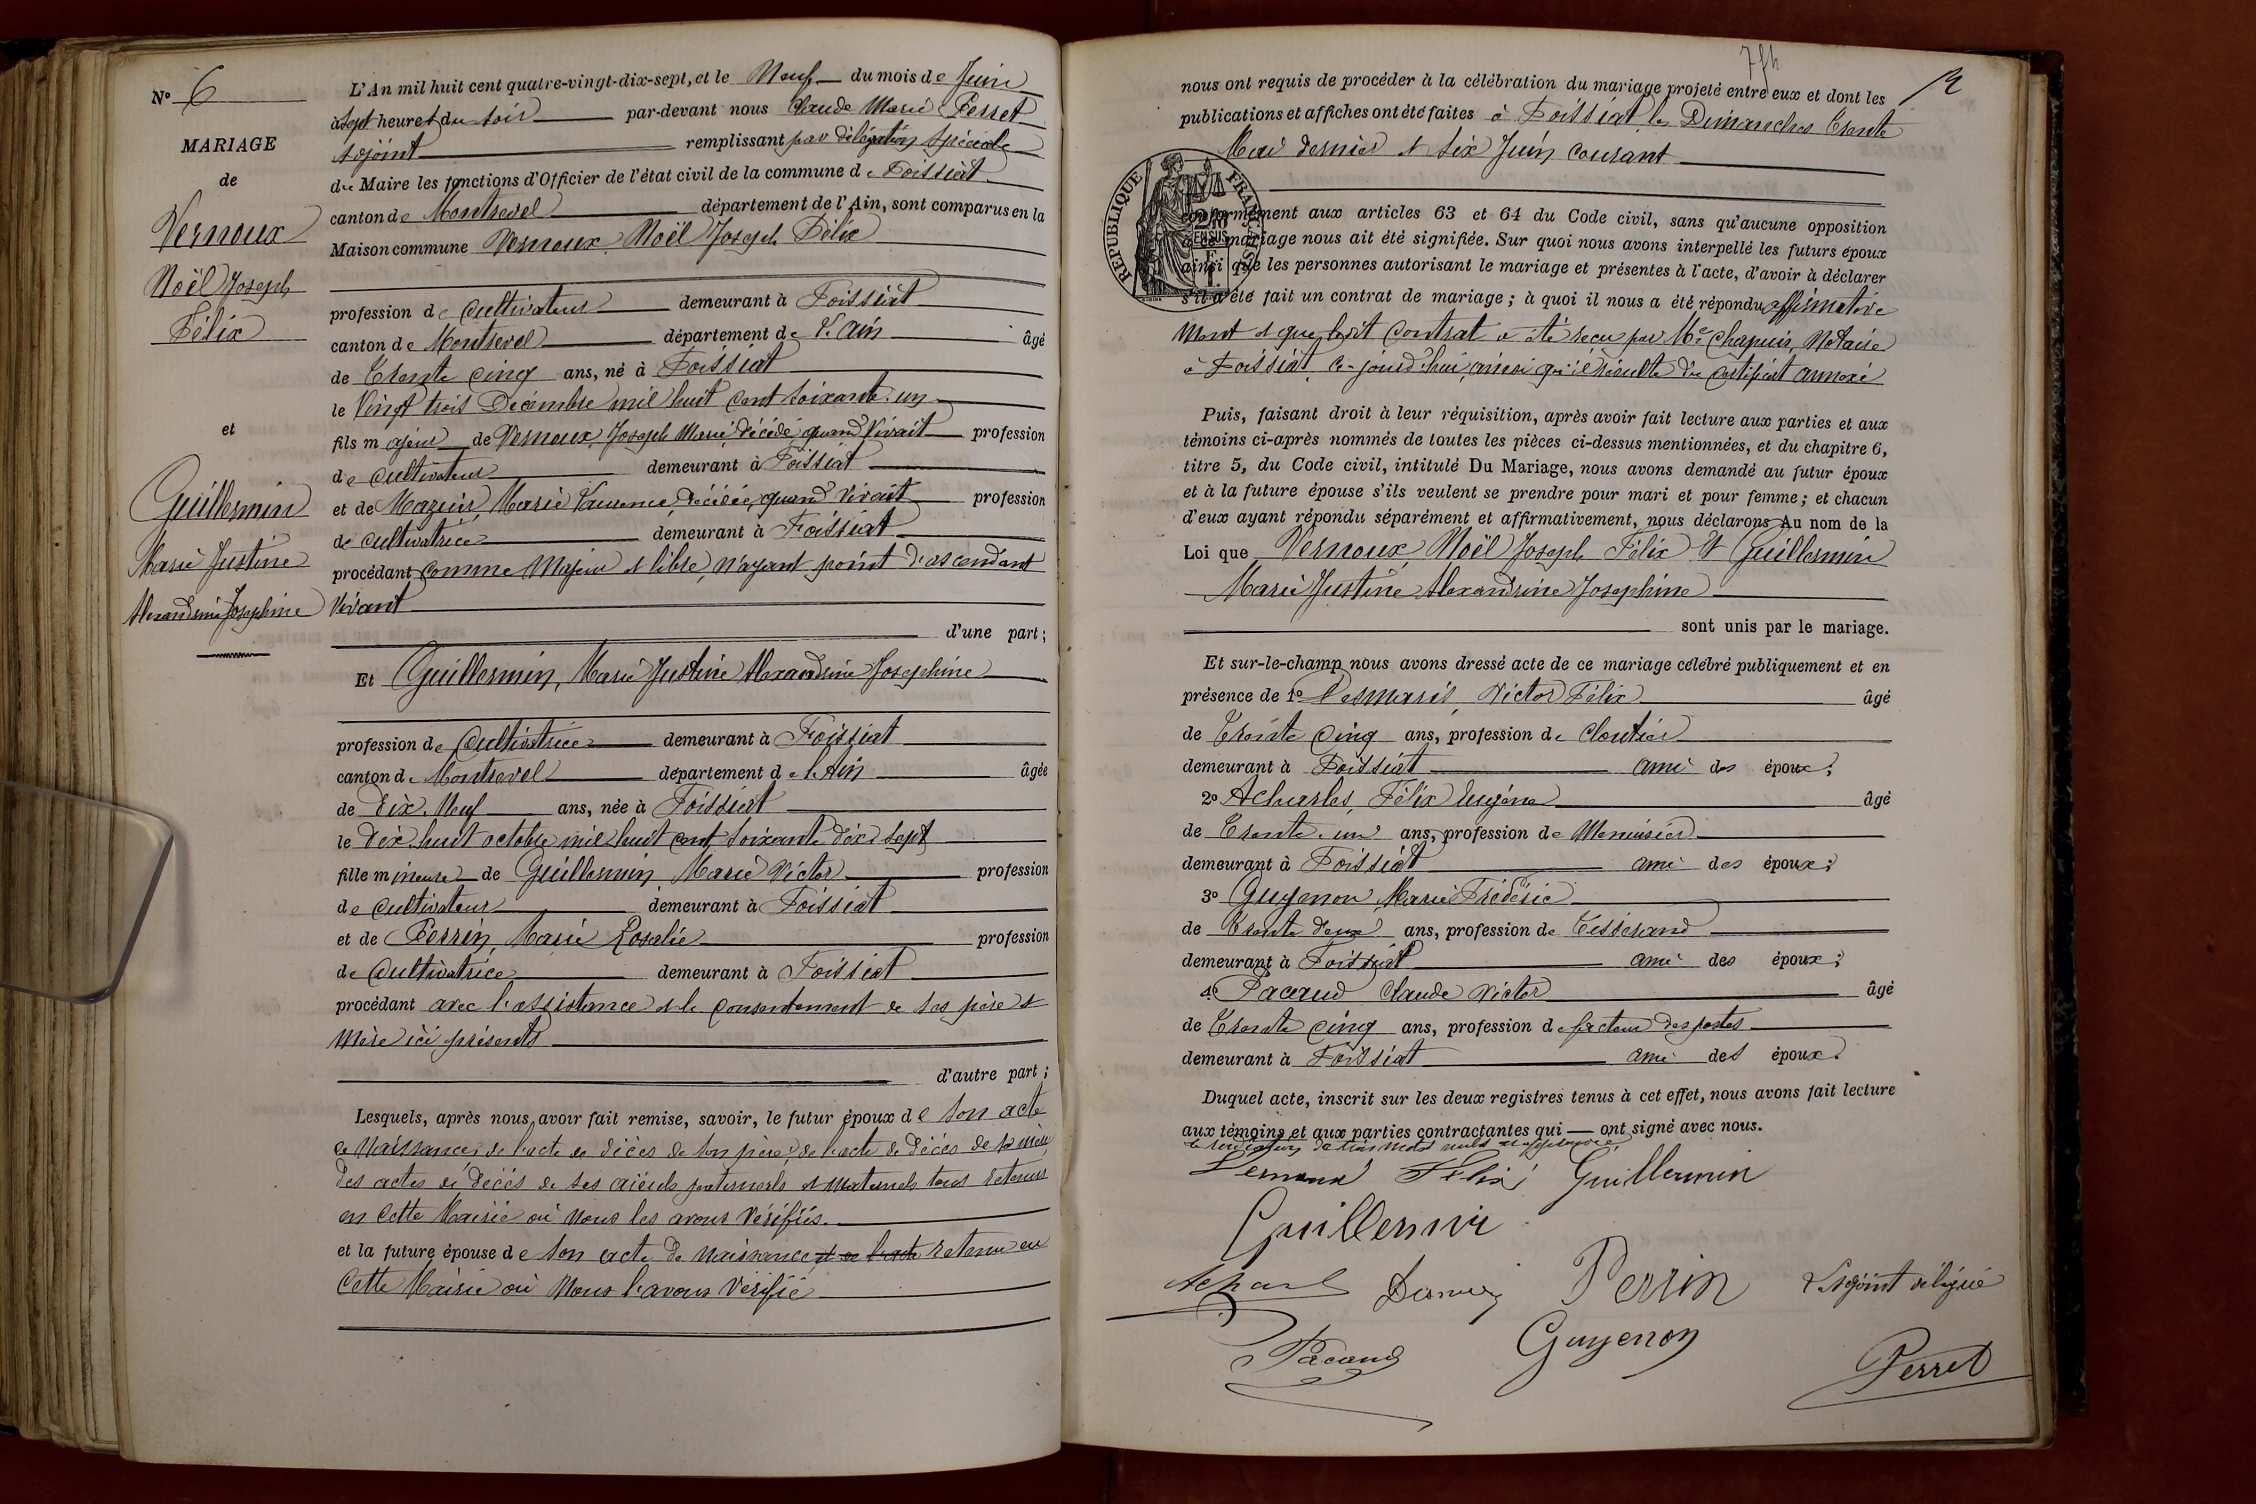 N° 6
MARIAGE
de
Vernoux
Noël Joseph
Félix
et
Guillermin
Marie Justine
Alexandrine Joséphine
L'An mil huit cent quatre-vingt-dix-sept, et le Neuf du mois de Juin
à Sept heures du soir par-devant nous Claude Marie Perret
Adjoint remplissant par délégation spéciale
du Maire les fonctions d'Officier de l'état civil de la commune de Foissiat
canton de Montrevel département de l'Ain, sont comparus en la
Maison commune Vernoux Noël Joseph Félix
profession de Cultivateur demeurant à Foissiat
canton de Montrevel département de l'Ain âgé
de Trente cinq ans, né à Foissiat
le Vingt trois Décembre mil huit cent soixante un
fils majeur de Vernoux, Joseph Marie décédé, quand vivait profession
de Cultivateur demeurant à Foissiat
et de Mazuir, Marie Laurence, décédée, quand vivait profession
de cultivatrice demeurant à Foissiat
procédant comme Majeur et libre, n'ayant point d'ascendant
vivant
d'une part;
Et Guillermin, Marie Justine Alexandrine Joséphine
profession de Cultivatrice demeurant à Foissiat
canton de Montrevel département de l'Ain âgée
de Dix-Neuf ans, née à Foissiat
le Dix-huit octobre mil huit cent soixante dix sept
fille mineure de Guillermin Marie Victor profession
de cultivateur demeurant à Foissiat
et de Perrin, Marie Rosalie profession
de Cultivatrice demeurant à Foissiat
procédant avec l'assistance et le consentement de ses père et
Mère ici présents
d'autre part;
Lesquels, après nous avoir fait remise, savoir, le futur époux de son acte
de Naissance, de l'acte de décès de son père, de l'acte de décès de sa mère
des actes de décès de ses aïeuls paternels et maternels tous retenus
en cette Mairie où nous les avons vérifiés.
et la future épouse de son acte de naissance et de l'acte retenu en
Cette Mairie où nous l'avons vérifié
7
12
nous ont requis de procéder à la célébration du mariage projeté entre eux et dont les
publications et affiches ont été faites à Foissiat les Dimanches trente
Mai dernier et six Juin courant
REPUBLIQUE FRANÇAISE
conformément aux articles 63 et 64 du Code civil, sans qu'aucune opposition
à ce mariage nous ait été signifiée. Sur quoi nous avons interpellé les futurs époux
ainsi que les personnes autorisant le mariage et présentes à l'acte, d'avoir à déclarer
s'il a été fait un contrat de mariage; à quoi il nous a été répondu affirmative
ment et que ledit contrat a été reçu par Me Chapuis, Notaire
à Foissiat, ce jourd'hui, ainsi qu'il résulte du certificat annexé
Puis, faisant droit à leur réquisition, après avoir fait lecture aux parties et aux
témoins ci-après nommés de toutes les pièces ci-dessus mentionnées, et du chapitre 6,
titre 5, du Code civil, intitulé Du Mariage, nous avons demandé au futur époux
et à la future épouse s'ils veulent se prendre pour mari et pour femme; et chacun
d'eux ayant répondu séparément et affirmativement, nous déclarons Au nom de la
Loi que Vernoux Noël Joseph Félix et Guillermin
Marie Justine Alexandrine Joséphine
sont unis par le mariage.
Et sur-le-champ nous avons dressé acte de ce mariage célébré publiquement et en
présence de 1° Desmaris, Victor Félix âgé
de Trente cinq ans, profession de Cloutier
demeurant à Foissiat ami des époux;
2° Acharles, Félix Eugène âgé
de Trente-un ans, profession de Menuisier
demeurant à Foissiat ami des époux;
3° Guyenon Marie Frédéric
de Trente deux ans, profession de Tisserand
demeurant à Foissiat ami des époux;
4° Pacaud Claude Victor âgé
de Trente cinq ans, profession de facteur des postes
demeurant à Foissiat ami des époux.
Duquel acte, inscrit sur les deux registres tenus à cet effet, nous avons fait lecture
aux témoins et aux parties contractantes qui ont signé avec nous.
de trois mots nuls
Vernoux Félix Guillermin
Guillermin
Perrin L'adjoint délégué
Pacaud Guyenon Perret